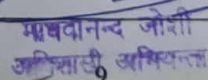 माधवानन्द जोशी
अधिशासी अभियन्ता